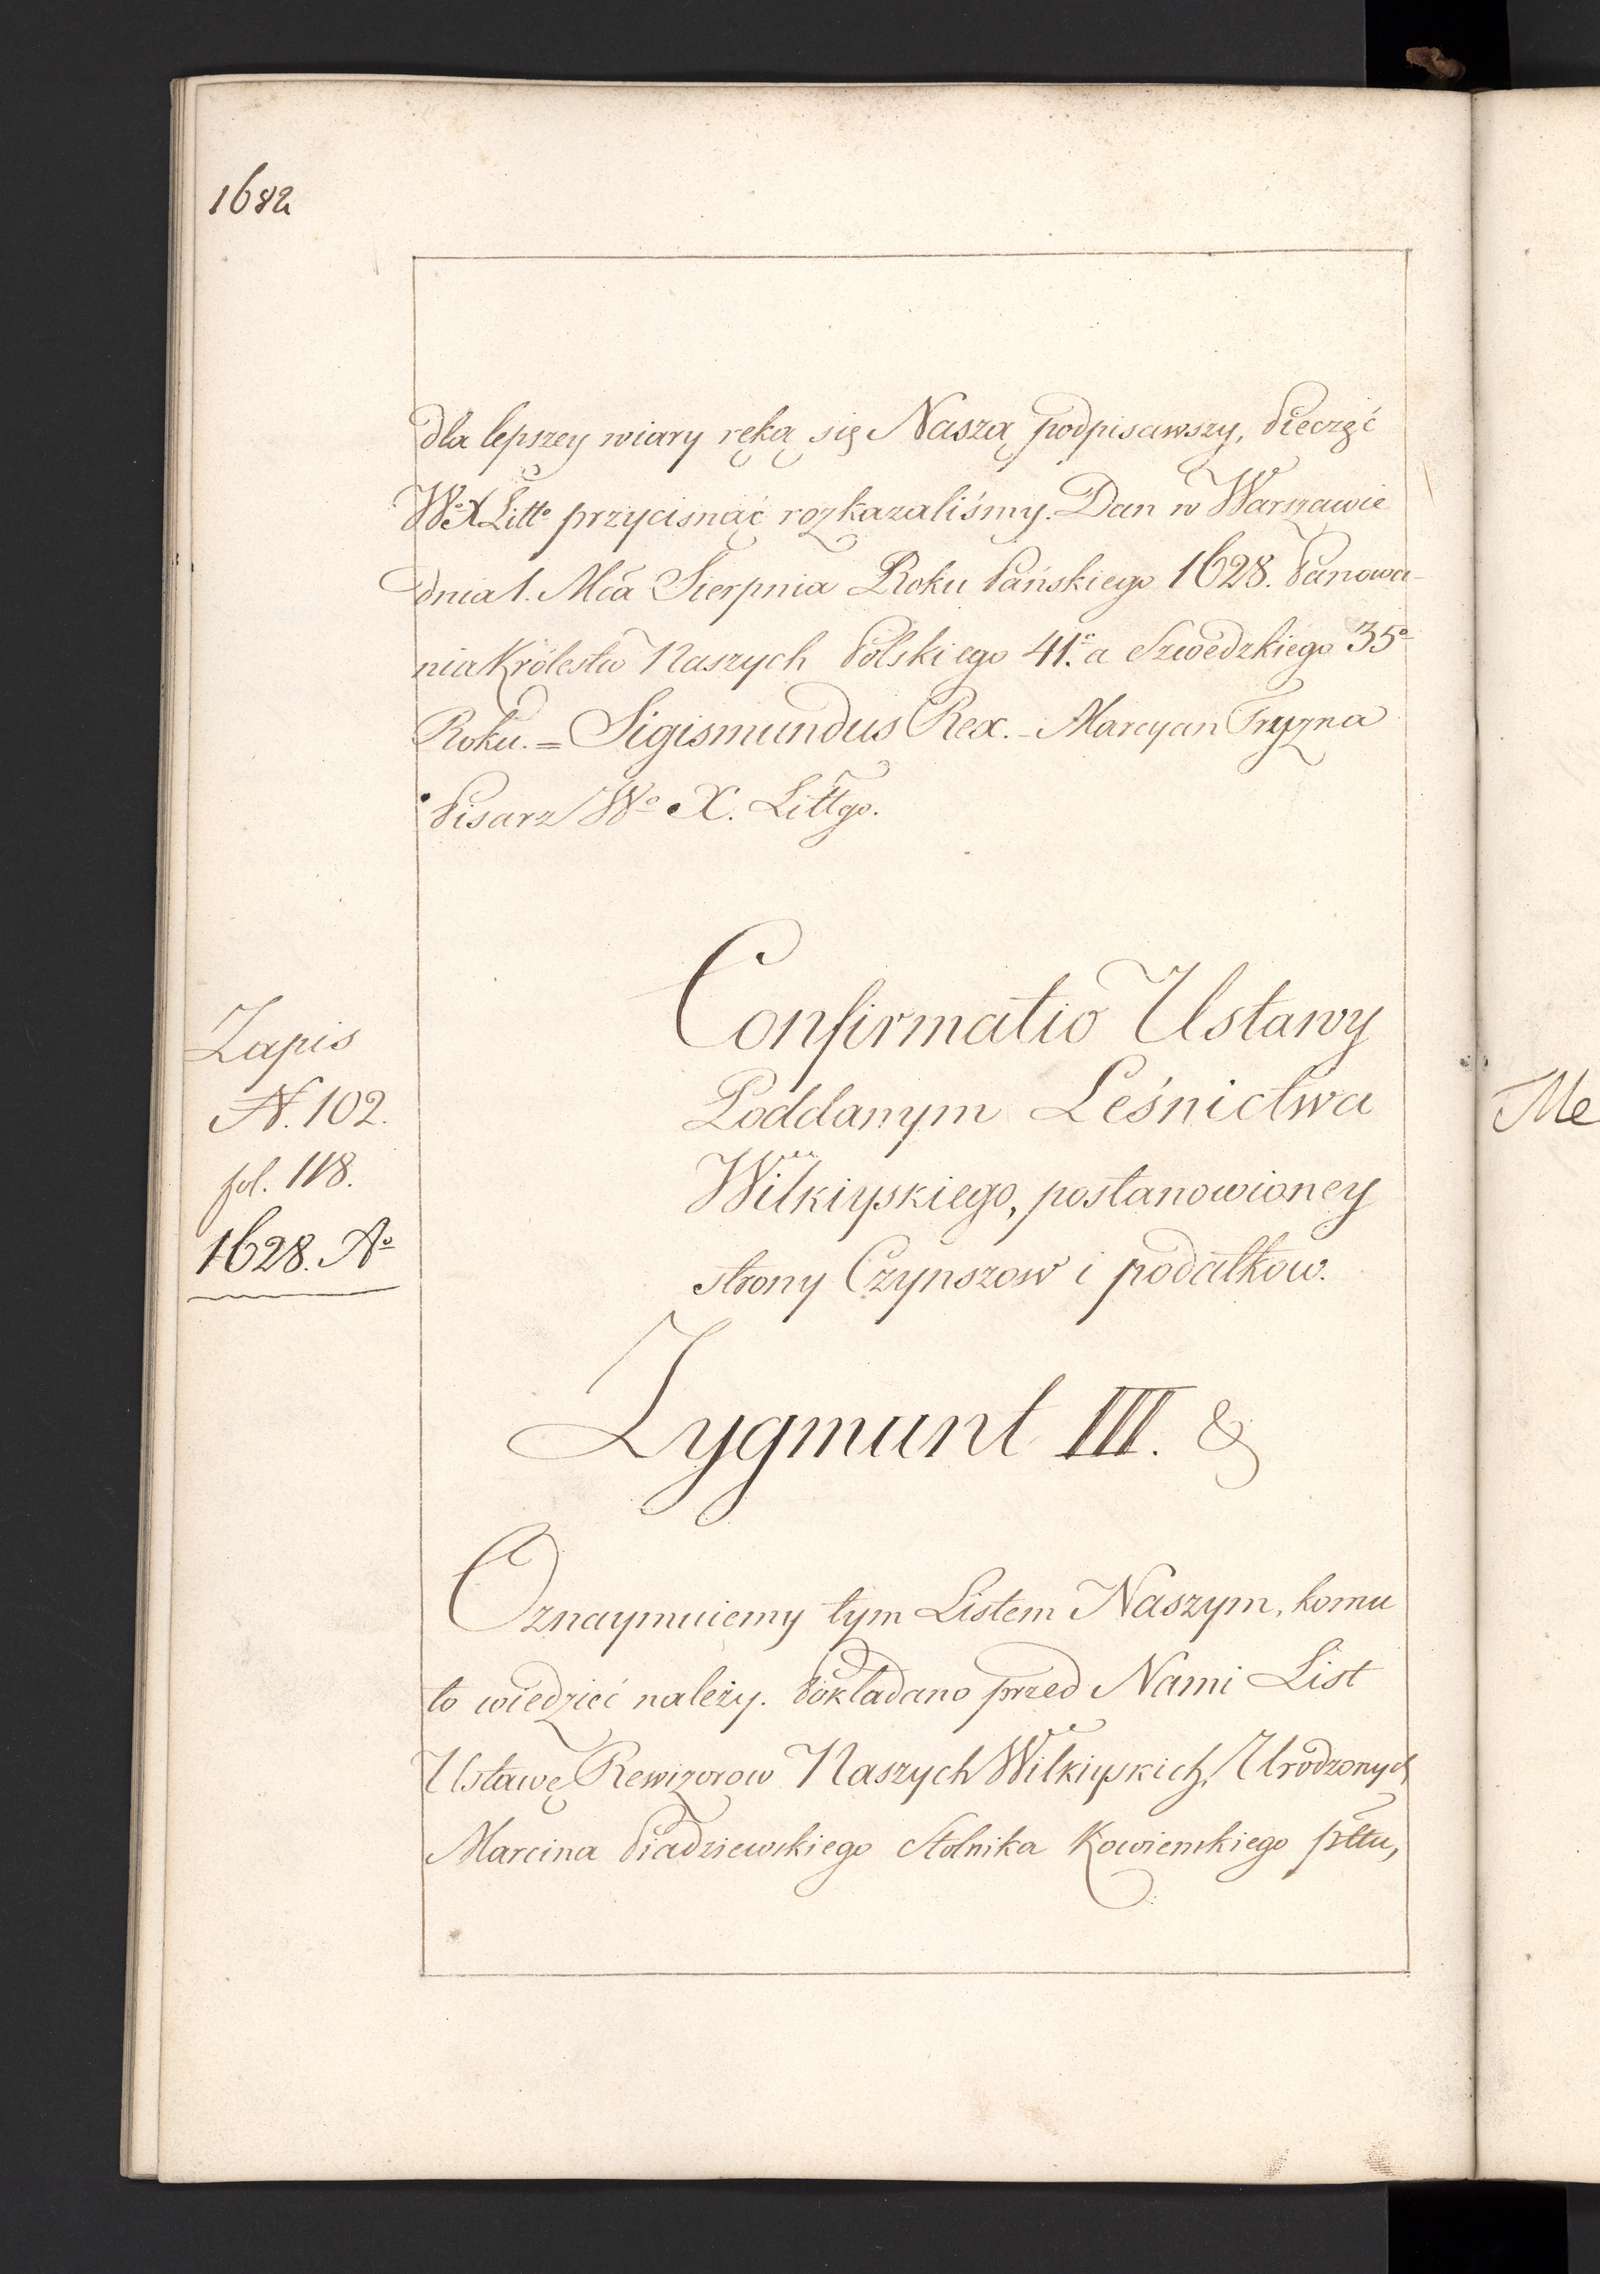 1682
dla lepszey wiary ręką się Naszą podpisawszy, Pieczęć
Wo X Litto przycisnąć rozkazaliśmy. Dan w Warszawie
dnia 1. Mca Sierpnia Roku Pańskiego 1628. Panowa-
nia Królestw Naszych Polskiego 41.o a Szwedzkiego 35o
Roku. = Sigismundus Rex. - Marcyan Tryzna
Pisarz Wo X. Littgo.
Zapis
N. 102.
fol. 118.
1628. Ao
Confirmatio Ustawy
Poddanym Leśnictwa
Wilkiyskiego, postanowioney
strony Czynszow i podatkow.
Zygmunt III. &
Oznaymuiemy tym Listem Naszym, komu
to wiedzieć należy. Pokładano przed Nami List
Ustawę Rewizorow Naszych Wilkiyskich, Urodzonych
Marcina Piadziewskiego Stolnika Kowienskiego pttu,
Me